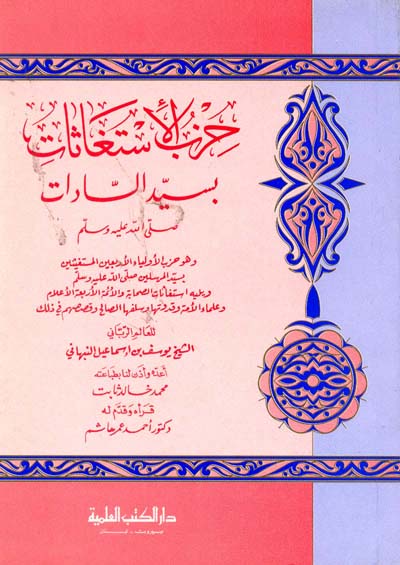 حزب الاستغاثات
بسيد السادات
صلى الله عليه وسلم
وهو حزب الأولياء الأربعين المستغيثين
بسيد المرسلين صلى الله عليه وسلم
ويليه استغاثات الصحابة والأئمة الأربعة الأعلام
وعلماء الأمة وقدوتها وسلفها الصالح وقصصهم في ذلك
للعالم الرباني
الشيخ يوسف بن اسماعيل النبهاني
أعده وأذن لنا بطباعته
محمد خالد ثابت
قرأه وقدم له
دكتور أحمد عمر هاشم
دار الكتب العلمية
بيروت - لبنان